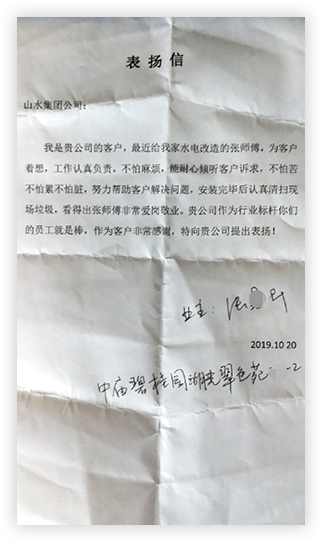 表扬信
山水集团公司:
我是贵公司的客户，最近给我家水电改造的张师傅，为客户
着想，工作认真负责，不怕麻烦，能耐心倾听客户诉求，不怕苦
不怕累不怕脏，努力帮助客户解决问题，安装完毕后认真清扫现
场垃圾，看得出张师傅非常爱岗敬业。贵公司作为行业标杆你们
的员工就是棒，作为客户非常感谢，特向贵公司提出表扬！
业主：
2019.10 20
中庙碧桂园湖光翠色苑 -2